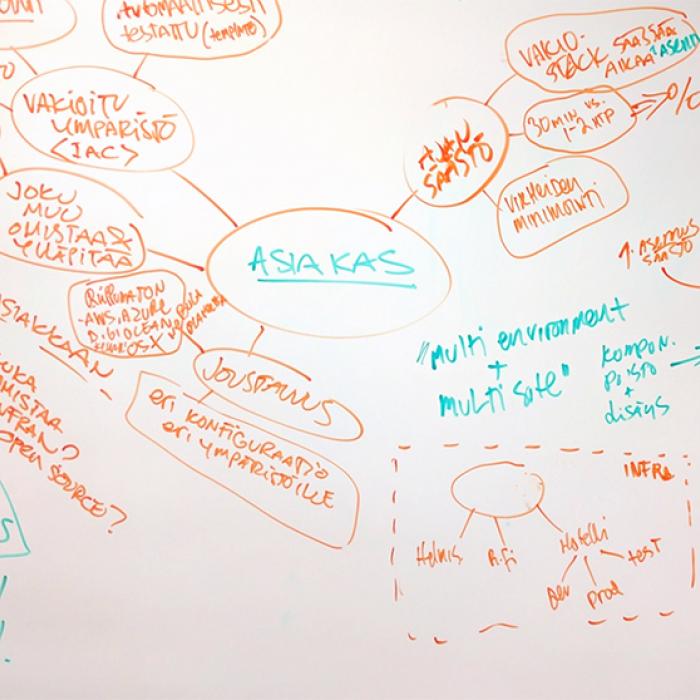 AUTOMAATTISESTI
TESTATTU (template)
VAKIOITU
YMPÄRISTÖ
<IAC>
JOKU
MUU
OMISTAA &
YLLÄPITÄÄ
RIIPPUMATON
-AWS, AZURE
DIGIOCEAN
OSX
ASIAKAS
JOUSTAVUUS
ERI KONFIGURAATIO
ERI YMPÄRISTÖILLE
ASIAKKAAN
KUKA
OMISTAA
INFRAN?
OPEN SOURCE?
AJAN
SÄÄSTÖ
VAKIO-
STACK SÄÄSTÄÄ
AIKAA
30 MIN vs.
1-2 HTP
VIRHEIDEN
MINIMOINTI
1. ASENNUS
SÄÄSTÖ
"multi environment
+
multi site"
KOMPON.
POISTO
+
LISÄYS
INFRA
Helmis
R.fi
Hotelli
test
Dev
prod